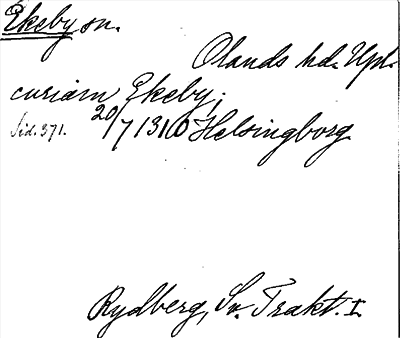 Ekeby sn.
Olands hd. Upl.
curiam Ekeby;
Sid. 371. 20/7 1310 Helsingborg
Rydberg, Sv. Trakt. I.